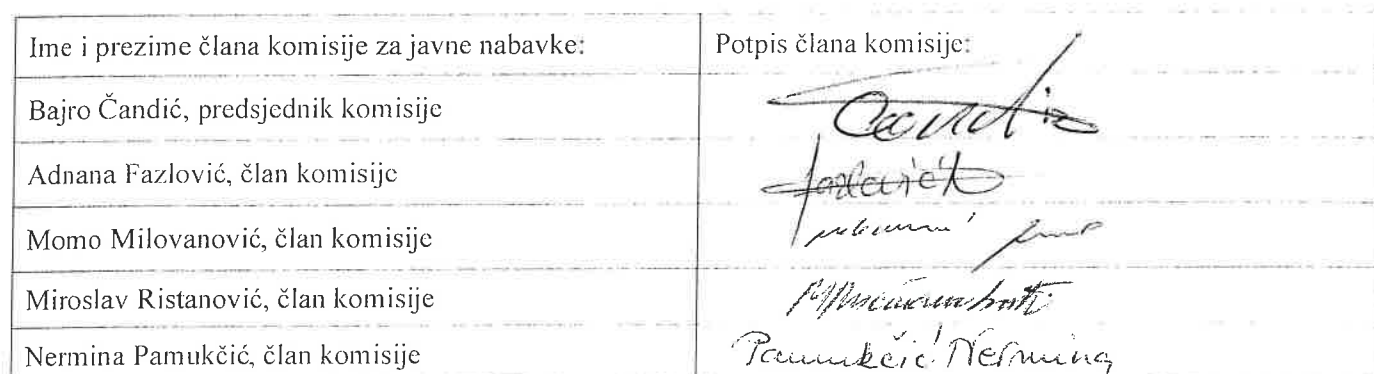 Ime i prezime člana komisije za javne nabavke: Potpis člana komisije:
Bajro Čandić, predsjednik komisije
Adnana Fazlović, član komisije
Momo Milovanović, član komisije
Miroslav Ristanović, član komisije
Nermina Pamukčić, član komisije Pamukčić Nermina